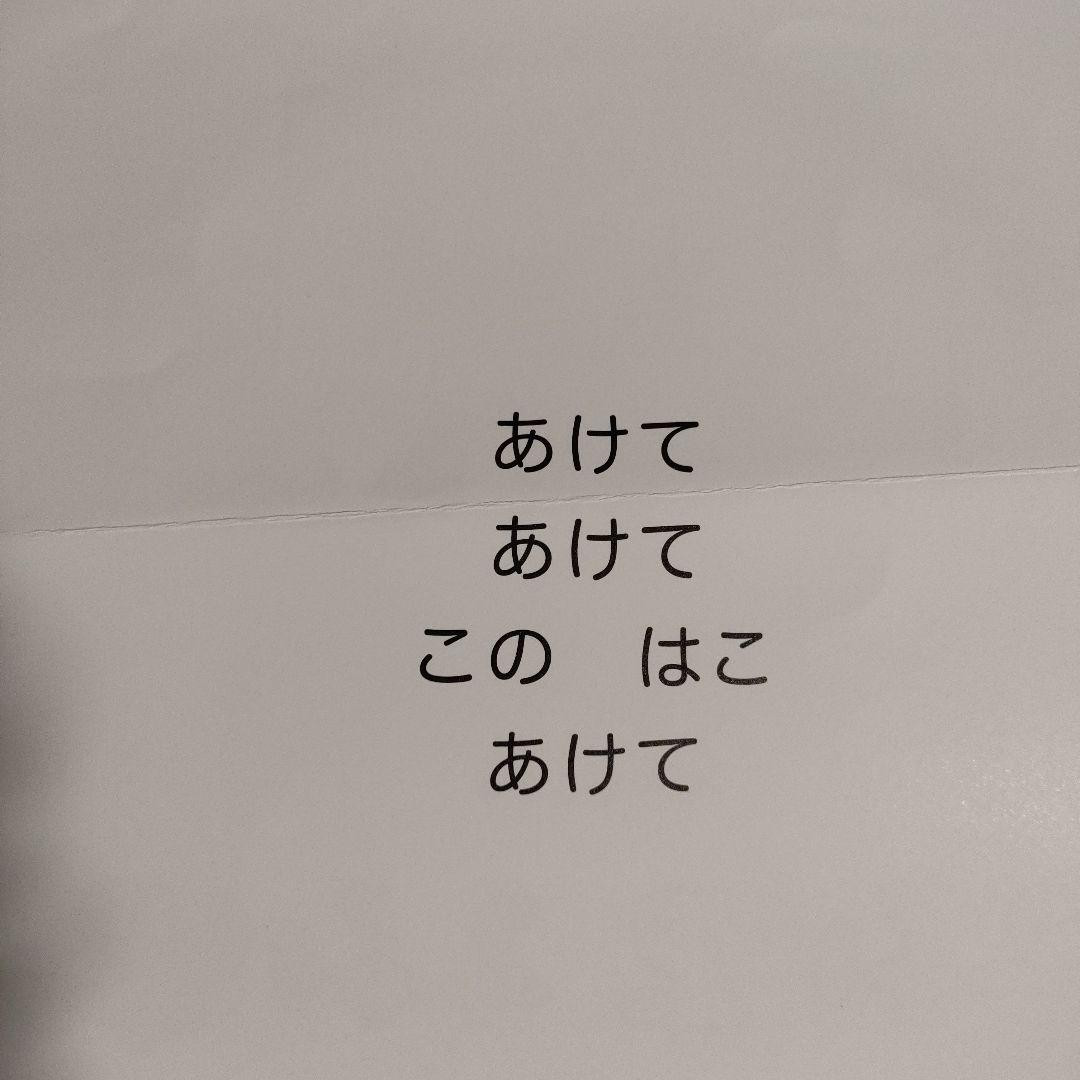 あけて
あけて
この　はこ
あけて